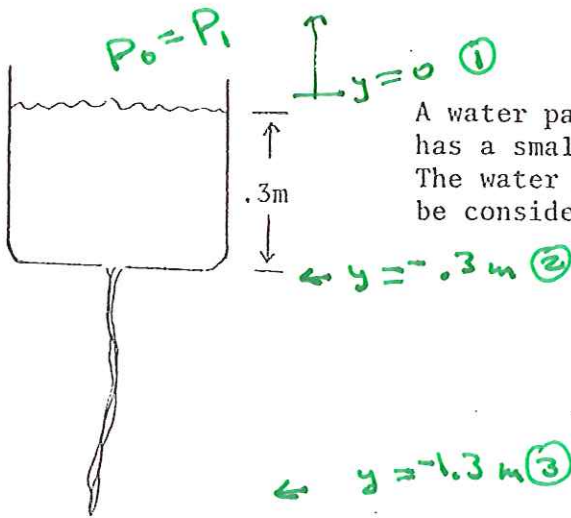 P₀ = P₁
y = 0 ①
A water pa
has a smal
The water
be conside
.3m
← y = -.3 m ②
← y = -1.3 m ③